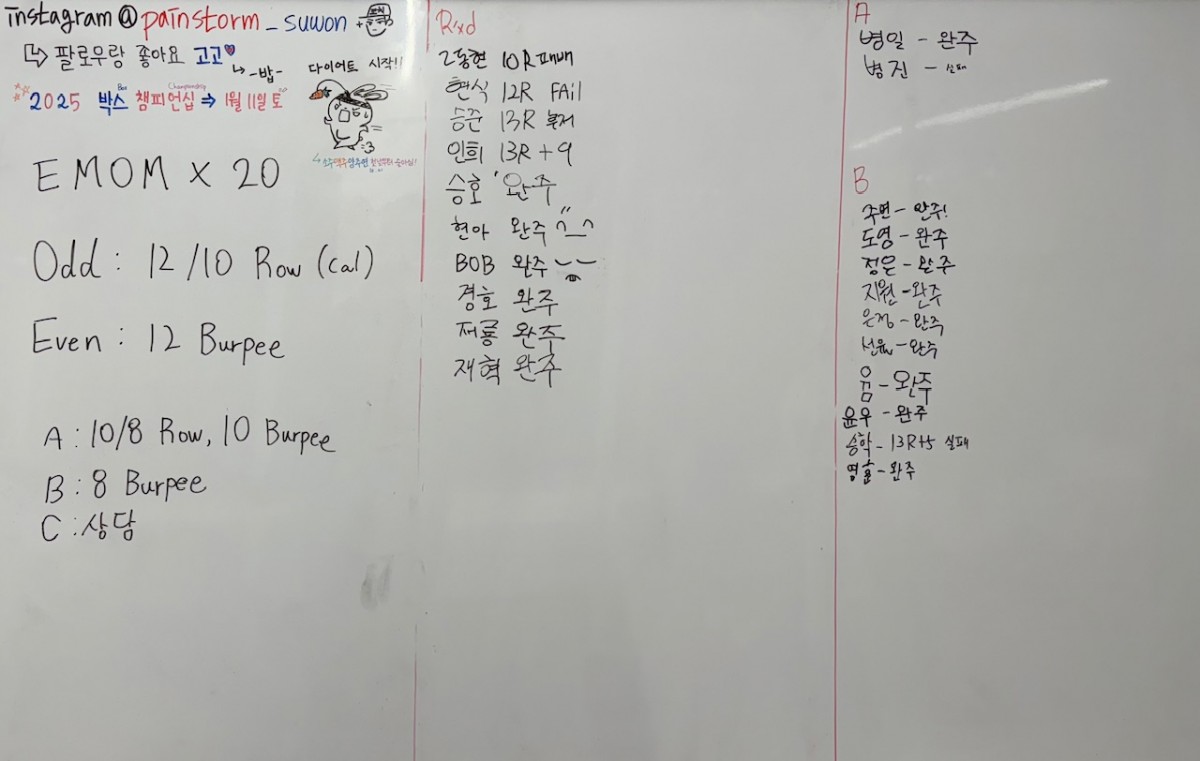 instagram@painstorm_suwon
↳ 팔로우랑 좋아요 고고♥
↳ -밥-
Championship
2025 박스 챔피언십 ⇒ 1월 11일 토
다이어트 시작!!
EMOM X 20
Odd : 12/10 Row (cal)
Even : 12 Burpee
A : 10/8 Row, 10 Burpee
B : 8 Burpee
C : 상담
Rxd
고동현 10R 패배
현식 12R FAil
승준 13R
인희 13R + 9
승호 완주
현아 완주 ^_^
BOB 완주
경호 완주
재룡 완주
재혁 완주
A
병일 - 완주
병진 - 실패
B
주연 - 완주!
도영 - 완주
정은 - 완주
지원 - 완주
은정 - 완주
선율 - 완주
움 - 완주
윤우 - 완주
승학 - 13R+5 실패
영훈 - 완주